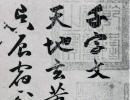 千字文
天地玄黄
昃辰宿